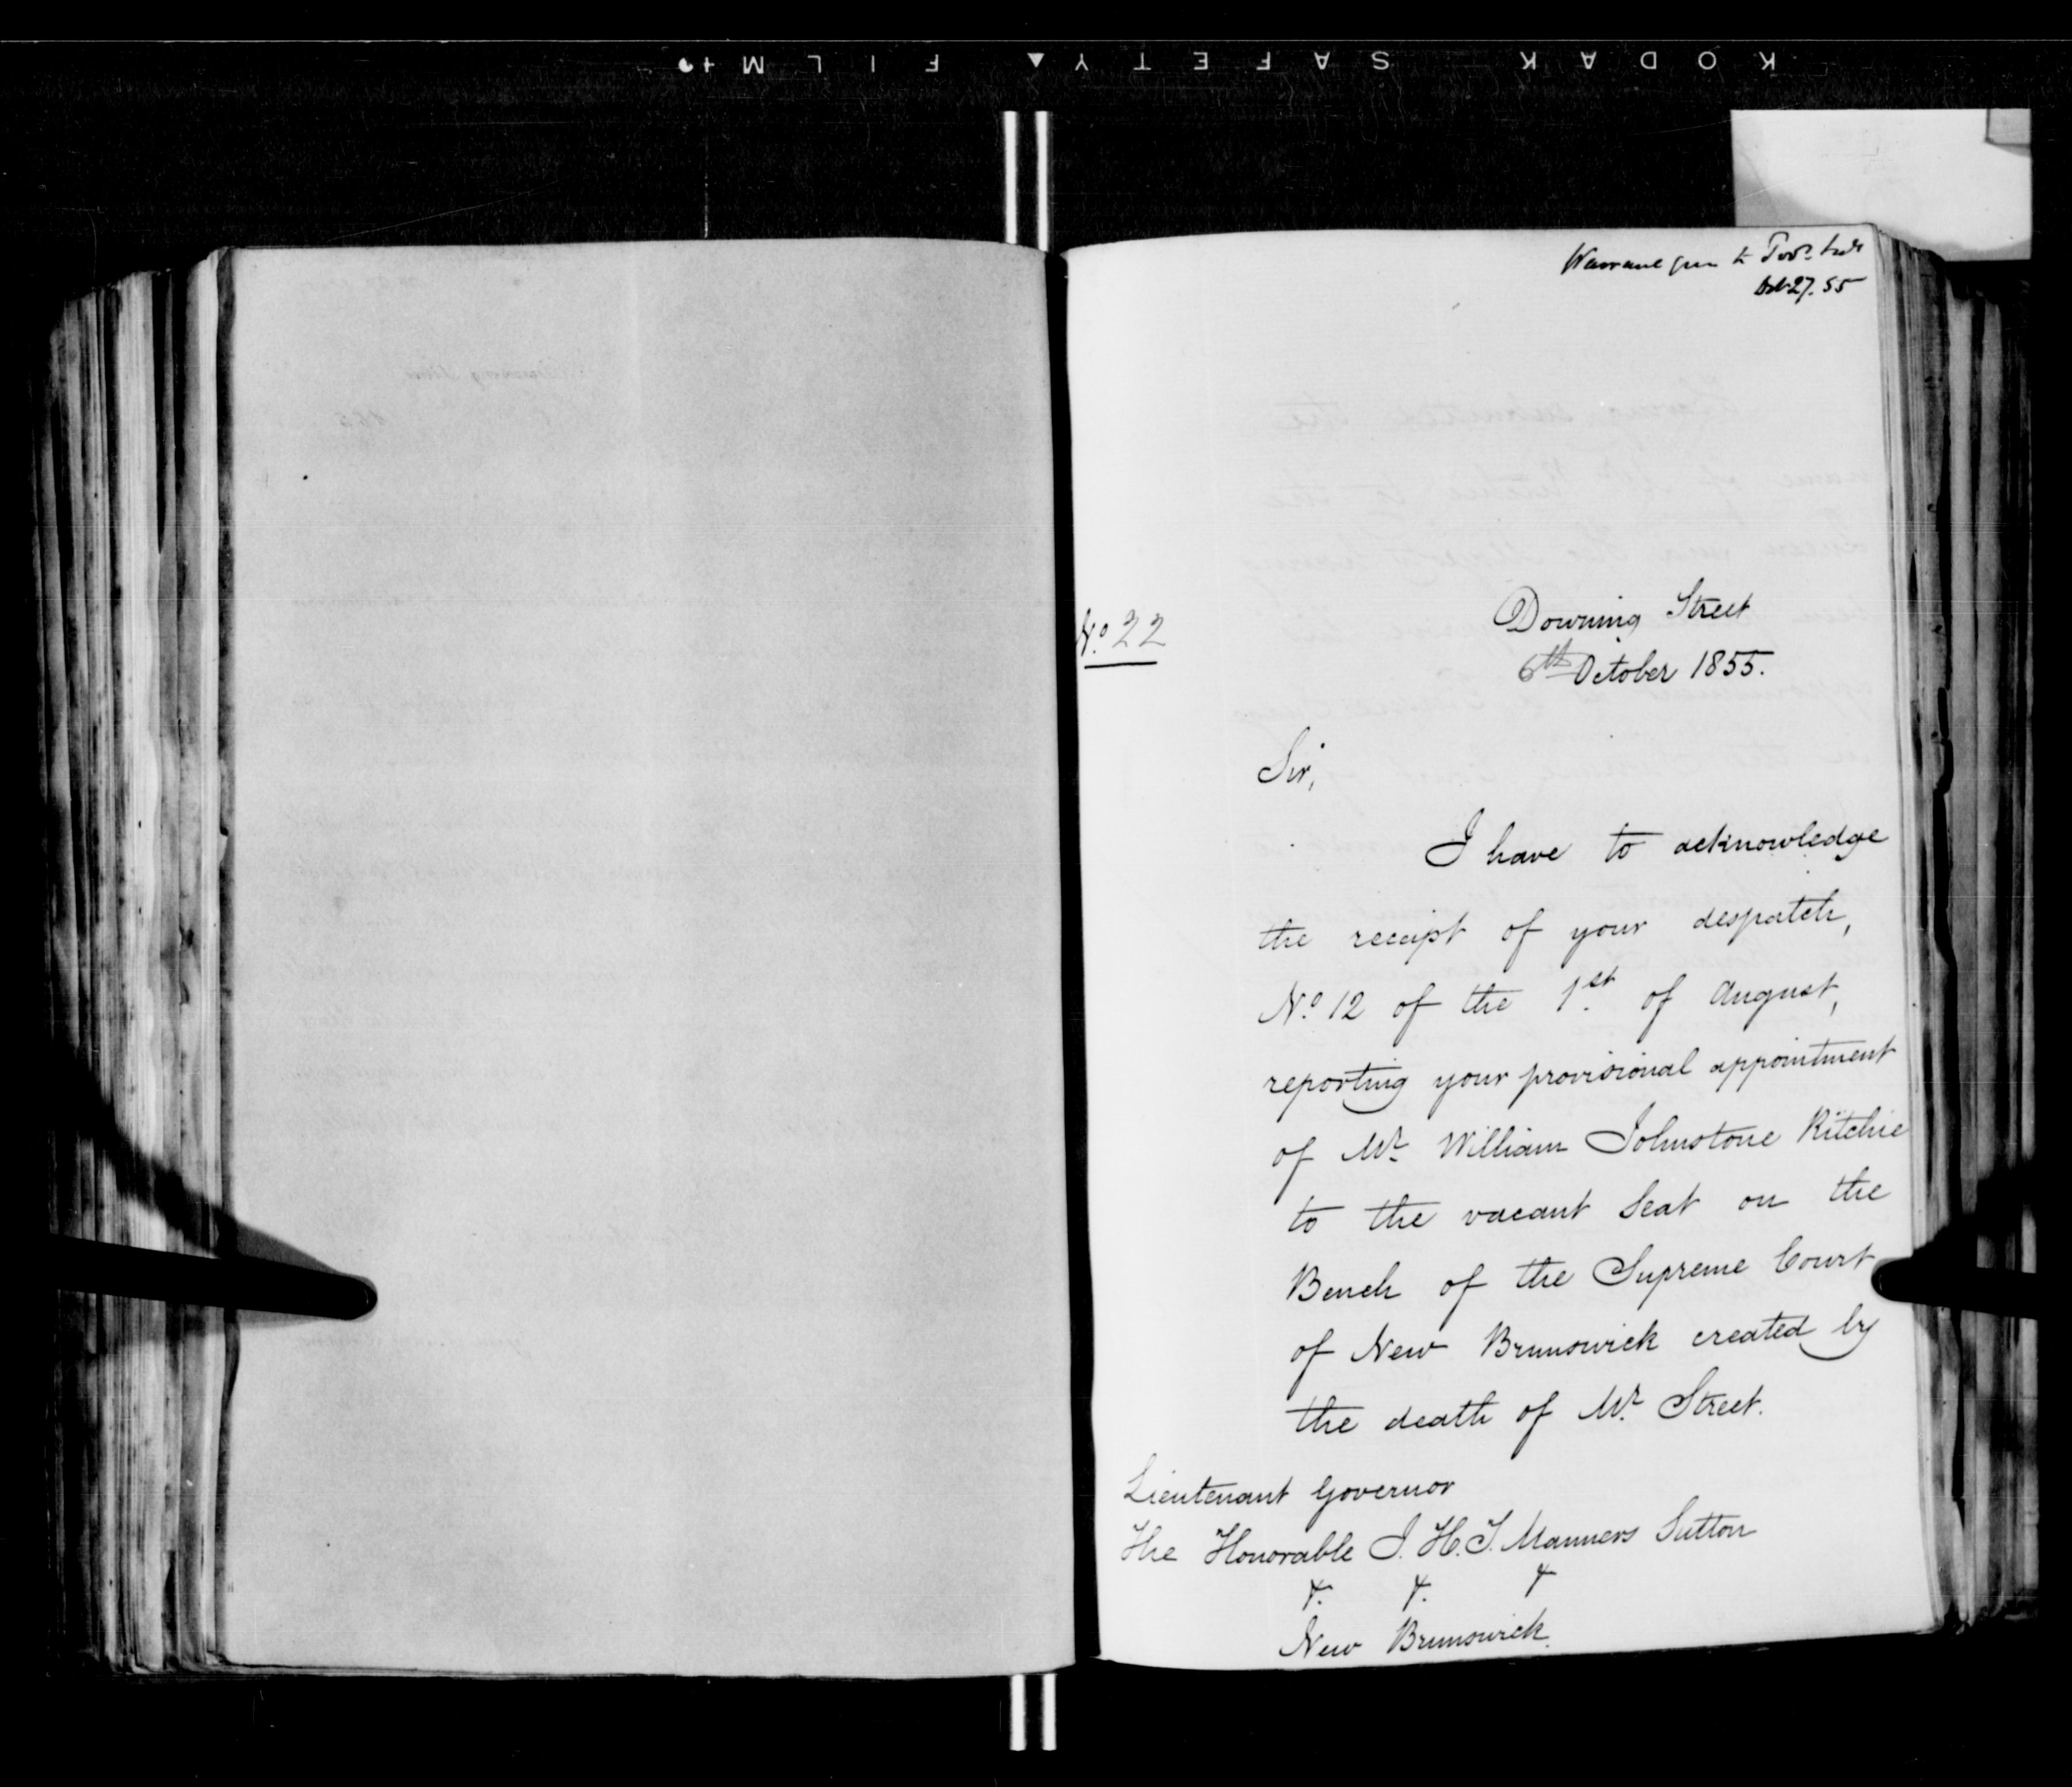 KODAK SAFETY FILM
Warrant to
Oct 27. 55
No. 22
Downing Street
6th October 1855.
Sir,
I have to acknowledge
the receipt of your despatch,
No. 12 of the 1st of August,
reporting your provisional appointment
of Mr. William Johnstone Ritchie
to the vacant Seat on the
Bench of the Supreme Court
of New Brunswick created by
the death of Mr. Street.
Lieutenant Governor
The Honorable J. H. T. Manners Sutton
&. &. &
New Brunswick.